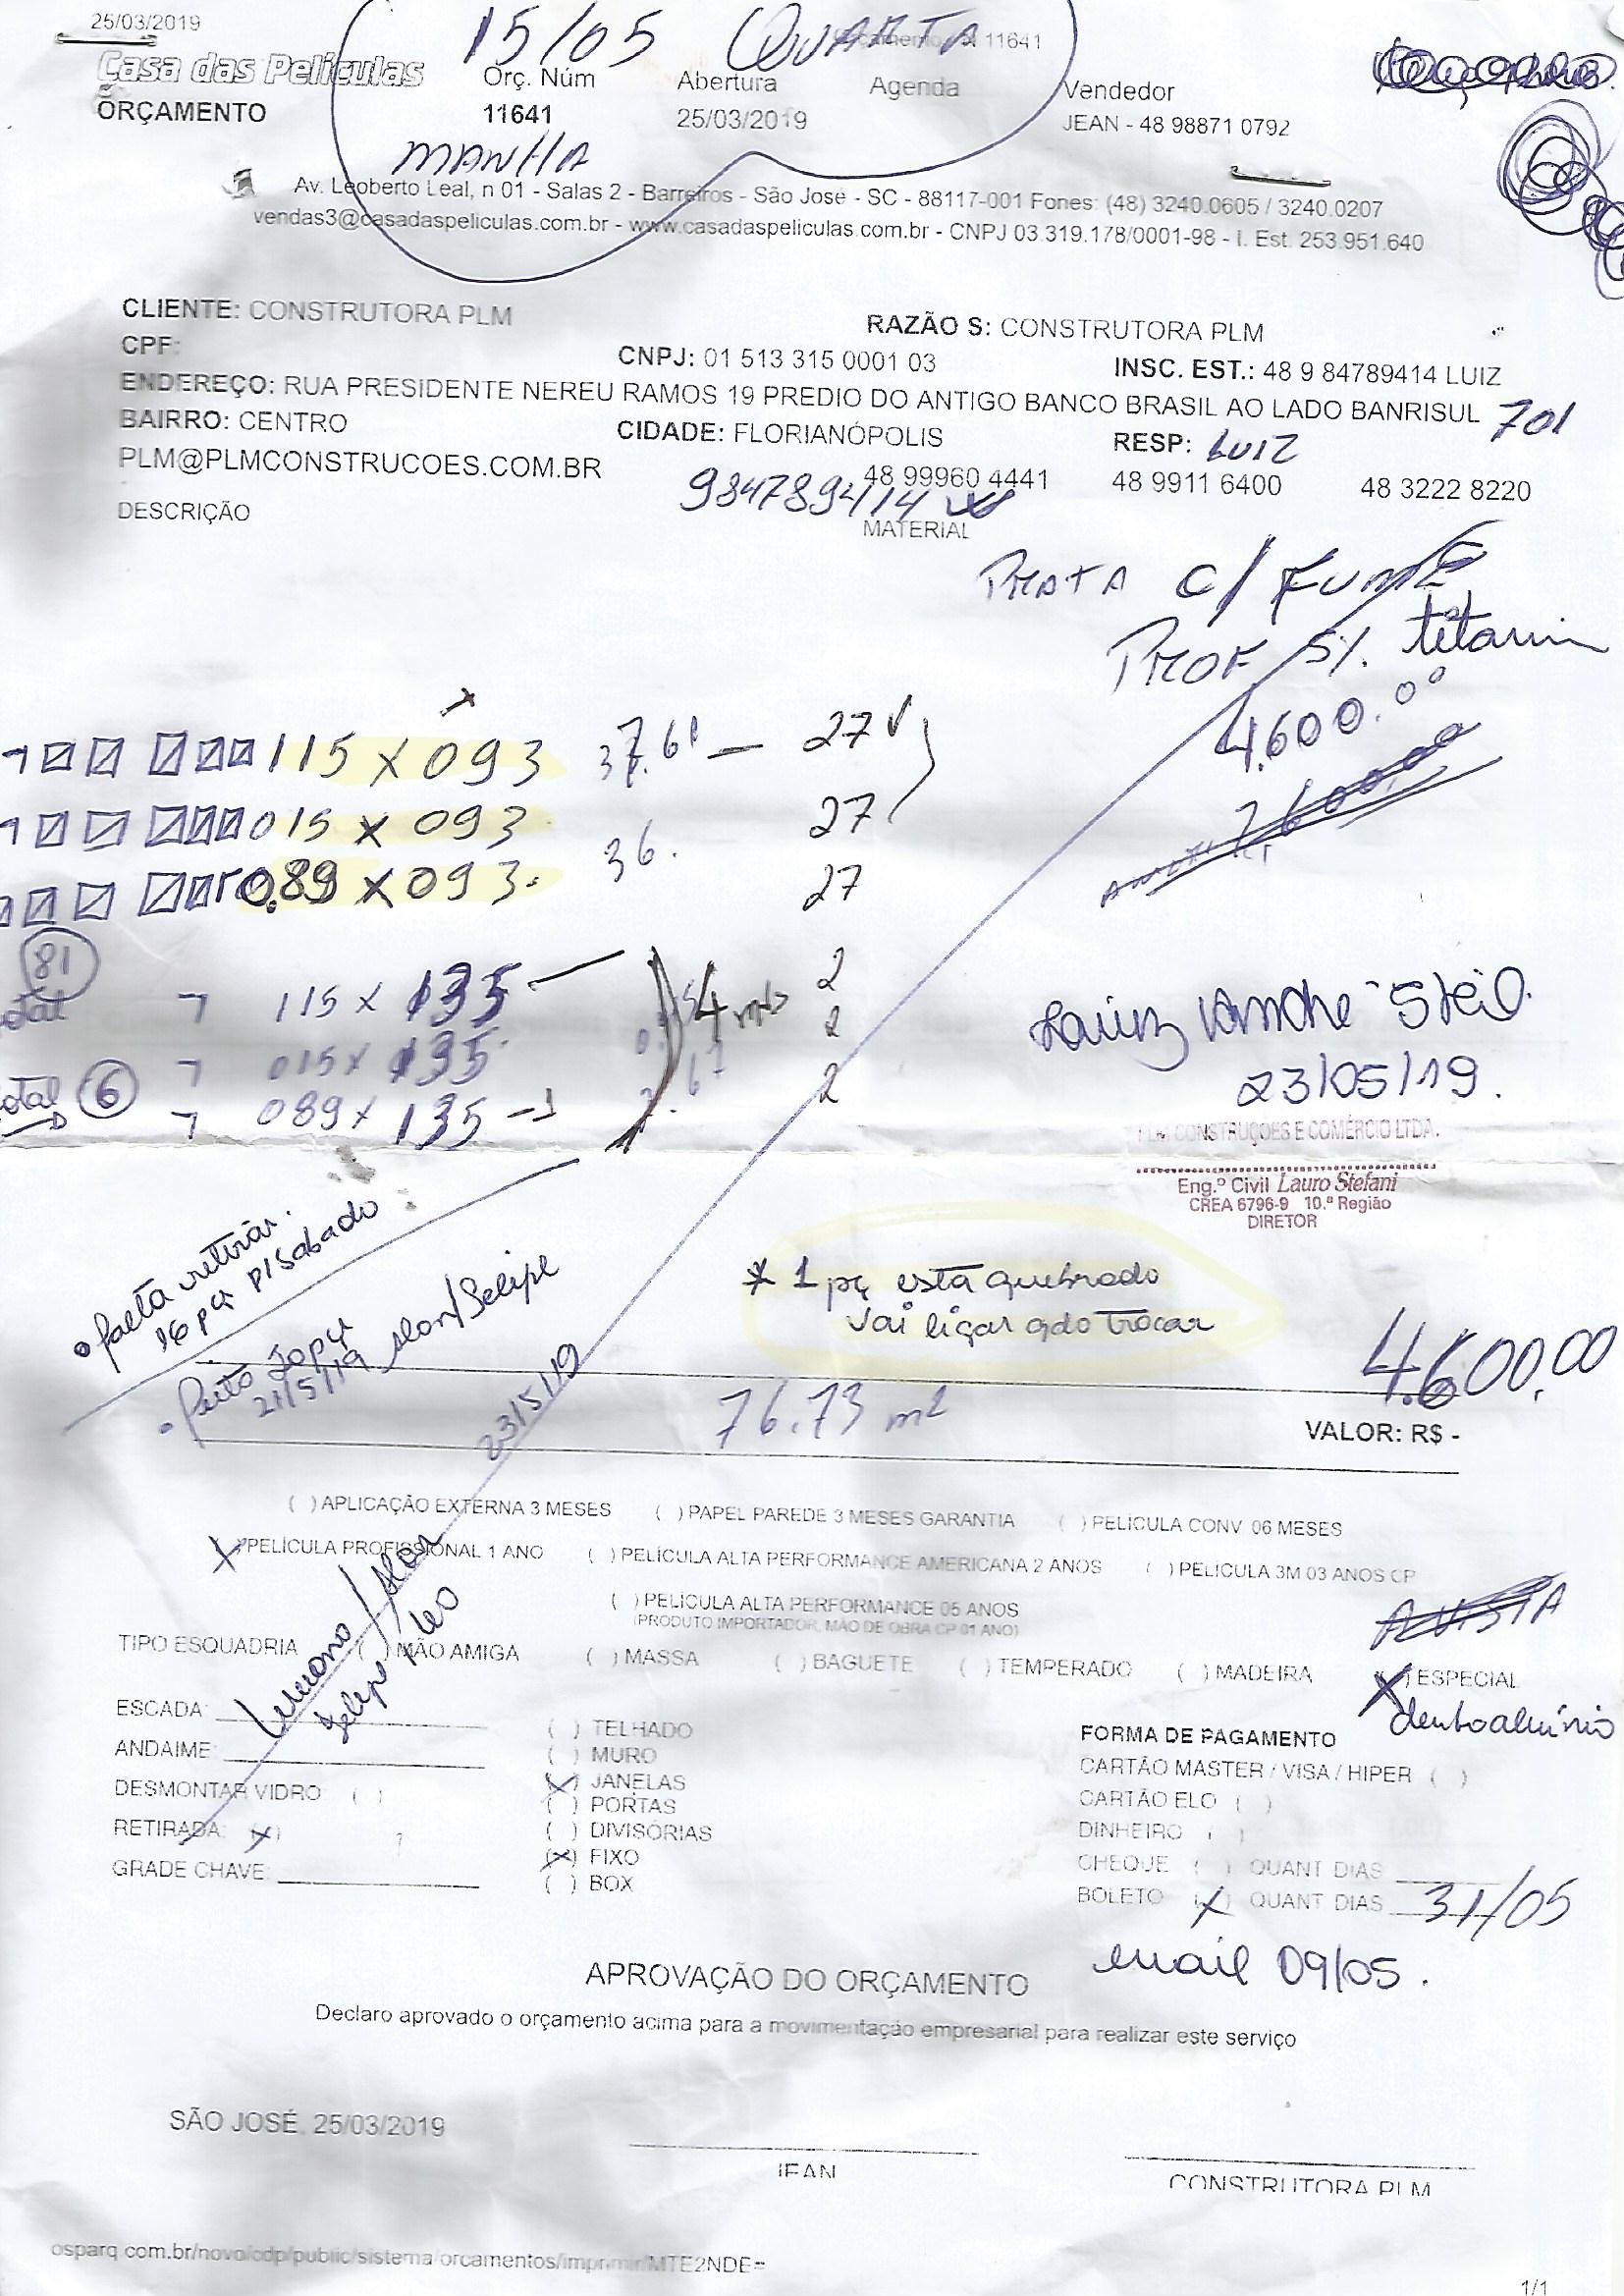 25/03/2019
15/05 QUARTA
11641
Casa das Películas
Orç. Núm Abertura Agenda Vendedor
ORÇAMENTO 11641 25/03/2019 JEAN - 48 98871 0792
MANHA
Av. Leoberto Leal, n 01 - Salas 2 - Barreiros - São José - SC - 88117-001 Fones: (48) 3240.0605 / 3240.0207
vendas3@casadaspeliculas.com.br - www.casadaspeliculas.com.br - CNPJ 03.319.178/0001-98 - I. Est. 253.951.640
CLIENTE: CONSTRUTORA PLM RAZÃO S: CONSTRUTORA PLM
CPF: CNPJ: 01 513 315 0001 03 INSC. EST.: 48 9 84789414 LUIZ
ENDEREÇO: RUA PRESIDENTE NEREU RAMOS 19 PREDIO DO ANTIGO BANCO BRASIL AO LADO BANRISUL 701
BAIRRO: CENTRO CIDADE: FLORIANÓPOLIS RESP: LUIZ
PLM@PLMCONSTRUCOES.COM.BR 48 99960 4441 48 9911 6400 48 3222 8220
984789414
DESCRIÇÃO MATERIAL
PRATA C/ FUME
PROF 5%. titanin
4.600.00
115 x 093 37.61 - 27
015 x 093 27
36.
089 x 093. 27
81
total 115 x 135 2
015 x 135 2
total 6 089 x 135 2
4
23/05/19.
PLM CONSTRUÇOES E COMÉRCIO LTDA.
Eng.º Civil Lauro Stefani
CREA 6796-9 10.ª Região
DIRETOR
• falta retirar.
16 pçs p/sabado
• feito 30 pçs
21/5/19 Alan/Felipe
23/5/19
* 1 pç está quebrado
Vai ligar qdo trocar
4.600,00
76.73 m²
VALOR: R$ -
( ) APLICAÇÃO EXTERNA 3 MESES ( ) PAPEL PAREDE 3 MESES GARANTIA ( ) PELÍCULA CONV 06 MESES
X PELÍCULA PROFISSIONAL 1 ANO ( ) PELÍCULA ALTA PERFORMANCE AMERICANA 2 ANOS ( ) PELICULA 3M 03 ANOS CP
( ) PELÍCULA ALTA PERFORMANCE 05 ANOS
(PRODUTO IMPORTADOR, MÃO DE OBRA CP 01 ANO)
A VISTA
Luciano / Alan
Felipe
TIPO ESQUADRIA ( ) MÃO AMIGA ( ) MASSA ( ) BAGUETE ( ) TEMPERADO ( ) MADEIRA (X) ESPECIAL
ESCADA:
ANDAIME:
DESMONTAR VIDRO ( )
RETIRADA: (X)
GRADE CHAVE:
( ) TELHADO
( ) MURO
(X) JANELAS
( ) PORTAS
( ) DIVISÓRIAS
(X) FIXO
( ) BOX
FORMA DE PAGAMENTO
CARTÃO MASTER / VISA / HIPER ( )
CARTÃO ELO ( )
DINHEIRO ( )
CHEQUE ( ) QUANT DIAS
BOLETO (X) QUANT DIAS 31/05
email 09/05.
APROVAÇÃO DO ORÇAMENTO
Declaro aprovado o orçamento acima para a movimentação empresarial para realizar este serviço
SÃO JOSÉ, 25/03/2019
JEAN CONSTRUTORA PLM
osparq.com.br/novo/cdp/public/sistema/orcamentos/imprimir/MTE2NDE=
1/1